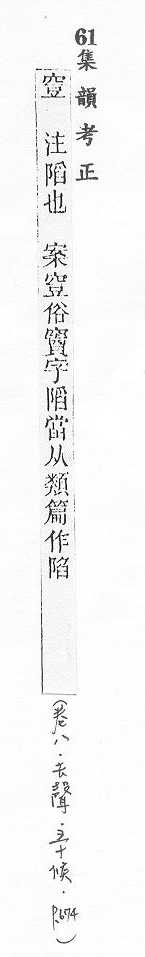 61集韻考正
窡 注䧟也 案窡俗竇字䧟當从類篇作陷
(卷八．去聲．五十候．P.674)